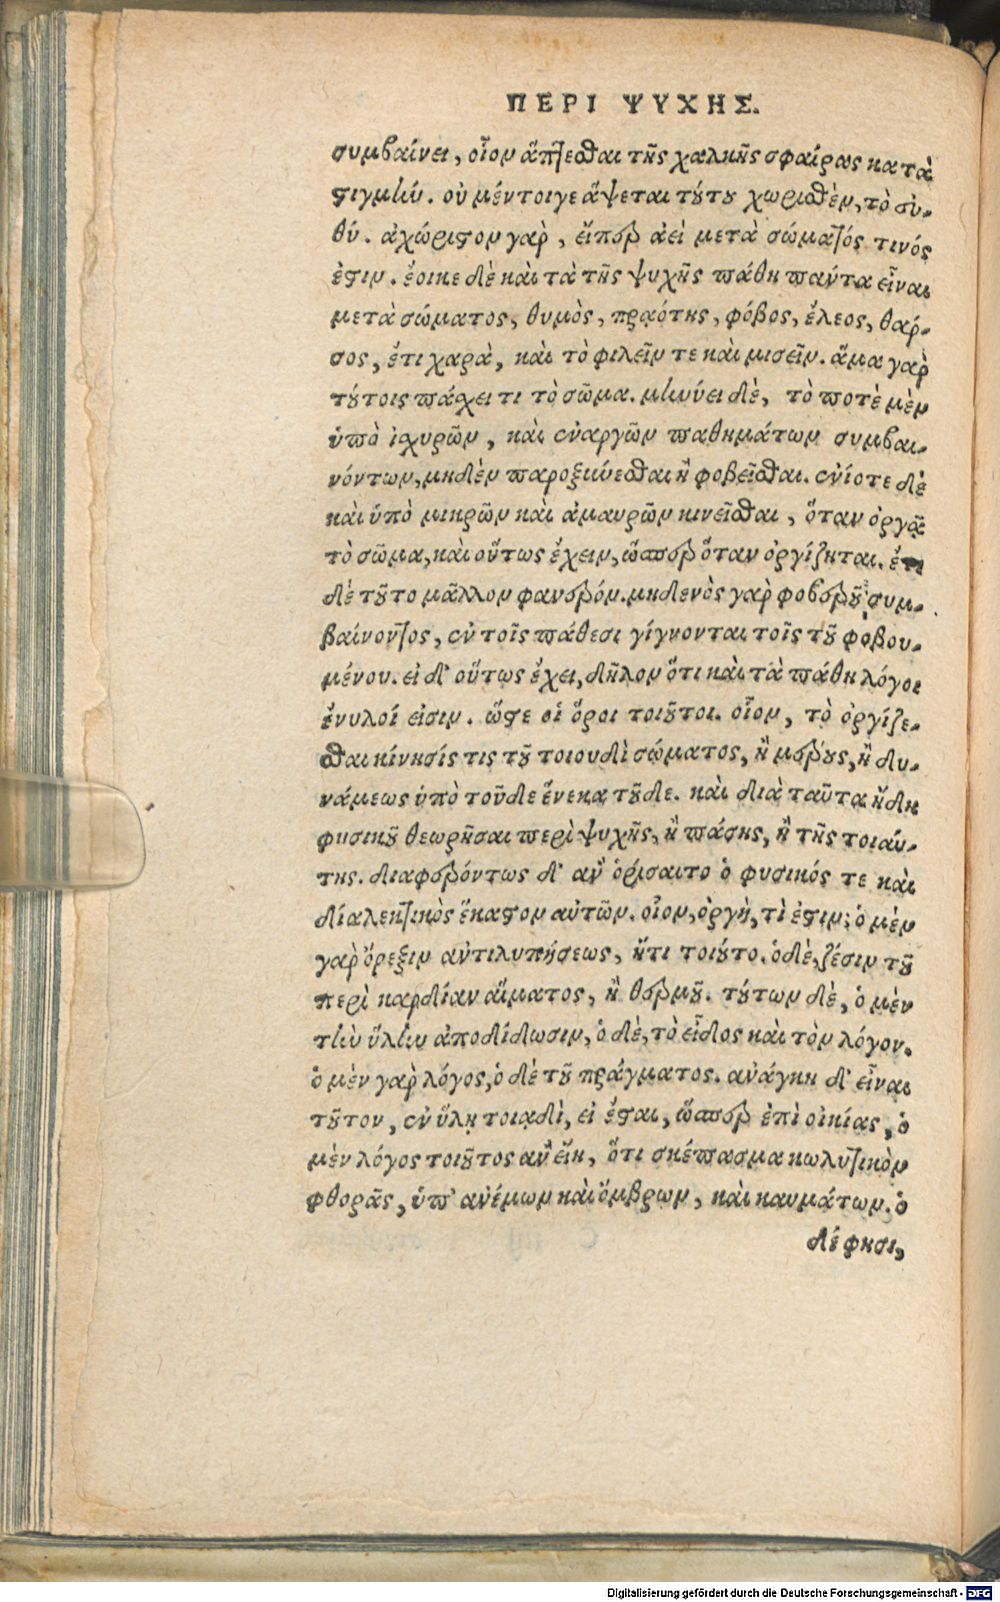 ΠΕΡΙ ΨΥΧΗΣ.
συμβαίνει, οἷον ἅπτεσθαι τῆς χαλκῆς σφαίρας κατὰ
στιγμὴν. οὐ μέντοιγε ἅψεται τούτου χωρισθὲν, τὸ εὐ-
θύ. ἀχώριστον γὰρ, εἴπερ ἀεὶ μετὰ σώματός τινός
ἐστιν. ἔοικε δὲ καὶ τὰ τῆς ψυχῆς πάθη πάντα εἶναι
μετὰ σώματος, θυμὸς, πραότης, φόβος, ἔλεος, θάρ-
σος, ἔτι χαρὰ, καὶ τὸ φιλεῖν τε καὶ μισεῖν. ἅμα γὰρ
τούτοις πάσχει τι τὸ σῶμα. μηνύει δὲ, τὸ ποτὲ μὲν
ὑπὸ ἰσχυρῶν, καὶ ἐναργῶν παθημάτων συμβαι-
νόντων, μηδὲν παροξύνεσθαι ἢ φοβεῖσθαι. ἐνίοτε δὲ
καὶ ὑπὸ μικρῶν καὶ ἀμαυρῶν κινεῖσθαι, ὅταν ὀργᾷ
τὸ σῶμα, καὶ οὕτως ἔχειν, ὥσπερ ὅταν ὀργίζηται. ἔτι
δὲ τοῦτο μᾶλλον φανερόν. μηδενὸς γὰρ φοβεροῦ συμ-
βαίνοντος, ἐν τοῖς πάθεσι γίγνονται τοῖς τοῦ φοβου-
μένου. εἰ δ' οὕτως ἔχει, δῆλον ὅτι καὶ τὰ πάθη λόγοι
ἔνυλοί εἰσιν. ὥστε οἱ ὅροι τοιοῦτοι. οἷον, τὸ ὀργίζε-
σθαι κίνησίς τις τοῦ τοιουδὶ σώματος, ἢ μέρους, ἢ δυ-
νάμεως ὑπὸ τοῦδε ἕνεκα τοῦδε. καὶ διὰ ταῦτα ἤδη
φυσικοῦ θεωρῆσαι περὶ ψυχῆς, ἢ πάσης, ἢ τῆς τοιαύ-
της. διαφερόντως δ' ἂν ὁρίσαιτο ὁ φυσικός τε καὶ
διαλεκτικὸς ἕκαστον αὐτῶν. οἷον, ὀργὴ, τὶ ἐστιν; ὁ μὲν
γὰρ ὄρεξιν ἀντιλυπήσεως, ἤτι τοιοῦτο. ὁ δὲ, ζέσιν τοῦ
περὶ καρδίαν αἵματος, ἢ θερμοῦ. τούτων δὲ, ὁ μὲν
τὴν ὕλην ἀποδίδωσιν, ὁ δὲ, τὸ εἶδος καὶ τὸν λόγον.
ὁ μὲν γὰρ λόγος, ὁ δὲ τοῦ πράγματος. ἀνάγκη δ' εἶναι
τοῦτον, ἐν ὕλῃ τοιᾳδὶ, εἰ ἔσται, ὥσπερ ἐπὶ οἰκίας, ὁ
μὲν λόγος τοιοῦτος ἂν εἴη, ὅτι σκέπασμα κωλυτικὸν
φθορᾶς, ὑπ' ἀνέμων καὶ ὄμβρων, καὶ καυμάτων. ὁ
δέ φησι,
Digitalisierung gefördert durch die Deutsche Forschungsgemeinschaft - DFG